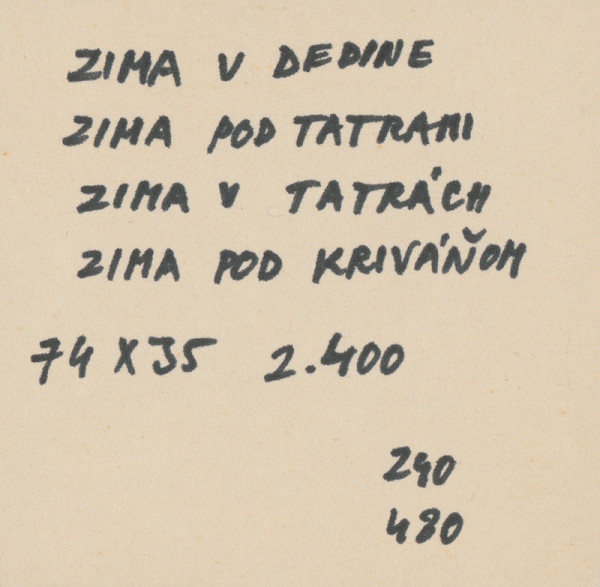 ZIMA V DEDINE
ZIMA POD TATRAMI
ZIMA V TATRÁCH
ZIMA POD KRIVÁŇOM
74 X 35 2.400
240
480